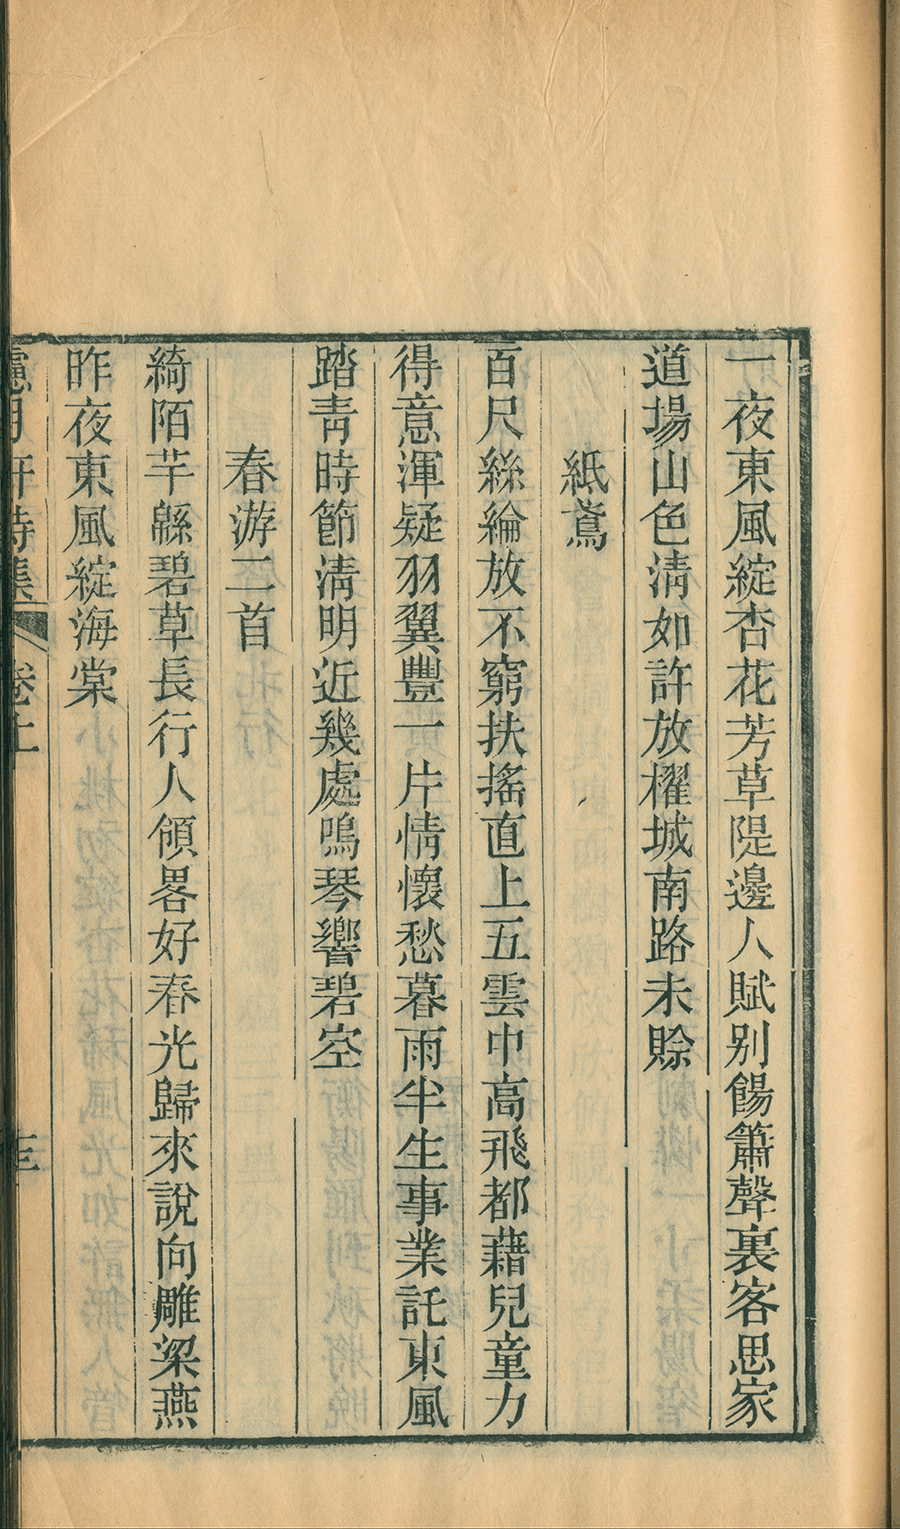 一夜東風綻杏花芳草隄邊人賦別餳簫聲裏客思家
道場山色清如許放櫂城南路未賒
紙鳶
百尺絲綸放不窮扶搖直上五雲中高飛都藉兒童力
得意渾疑羽翼豐一片情懷愁暮雨半生事業託東風
踏青時節清明近幾處鳴琴響碧空
春游二首
綺陌芊緜碧草長行人傾畧好春光歸來說向雕梁燕
昨夜東風綻海棠
月軒詩集 卷上 三